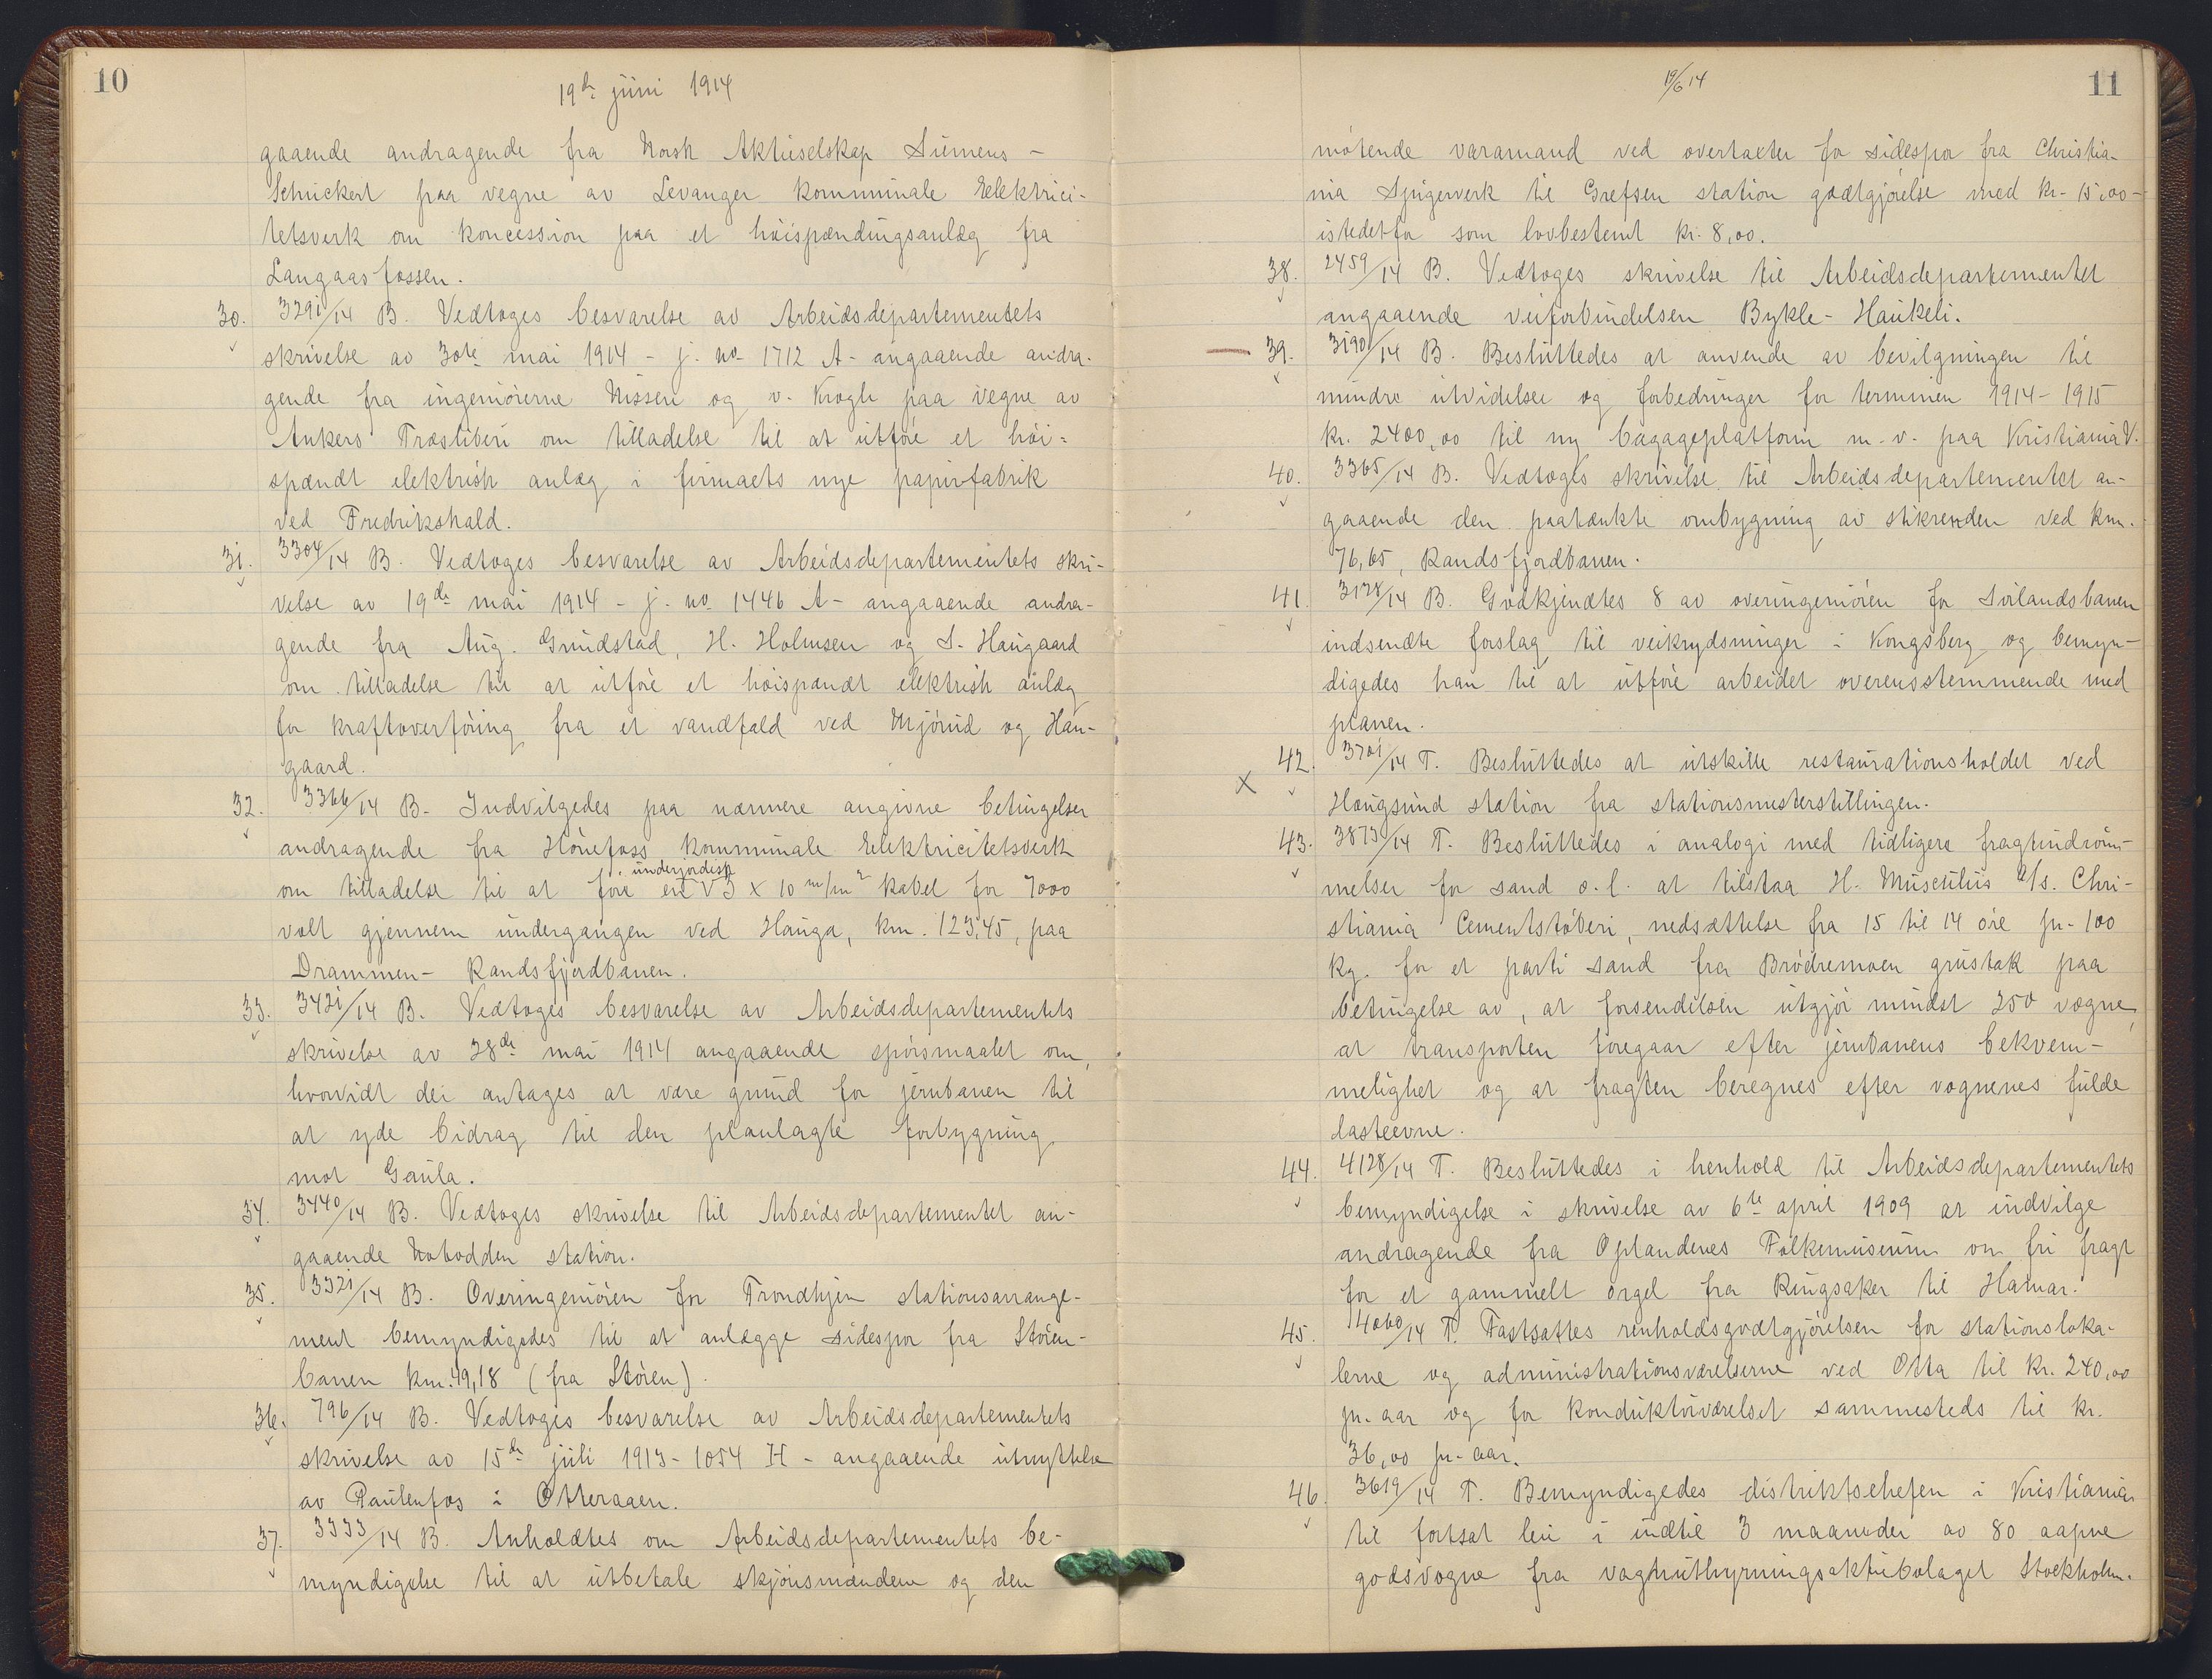 10
19de juni 1914
gaaende andragende fra Norsk Aktieselskap Siemens-
Schuckert paa vegne av Levanger kommunale Elektrici-
tetsverk om koncession paa et høispændingsanlæg fra
Langaasfossen.
30. 3291/14 B. Vedtoges besvarelse av Arbeidsdepartementets
skrivelse av 30te mai 1914 - j. no 1712 A - angaaende andra-
gende fra ingeniørerne Nissen og v. Krogh paa vegne av
Ankers Træsliberi om tilladelse til at utføre et høi-
spændt elektrisk anlæg i firmaets nye papirfabrik
ved Fredrikshald.
31. 3304/14 B. Vedtoges besvarelse av Arbeidsdepartementets skri-
velse av 19de mai 1914 - j. no 1446 A - angaaende andra-
gende fra Aug. Grundstad, H. Holmsen og S. Haugaard
om tilladelse til at utføre et høispændt elektrisk anlæg
for kraftoverføring fra et vandfald ved Mjørud og Hau-
gaard.
32. 3366/14 B. Indvilgedes paa nærmere angivne betingelser
andragende fra Hønefoss kommunale Elektricitetsverk
om tilladelse til at føre en underjordisk 3 x 10 m/m² kabel for 7000
volt gjennem undergangen ved Hauga, km. 123,45, paa
Drammen- Randsfjordbanen.
33. 3421/14 B. Vedtoges besvarelse av Arbeidsdepartementets
skrivelse av 28de mai 1914 angaaende spørsmaalet om,
hvorvidt der antages at være grund for jernbanen til
at yde bidrag til den planlagte forbygning
mot Gaula.
34. 3440/14 B. Vedtoges skrivelse til Arbeidsdepartementet an-
gaaende Notodden station.
35. 3321/14 B. Overingeniøren for Trondhjem stationsarrange-
ment bemyndigedes til at anlægge sidespor fra Støren-
banen km. 49,18 (fra Støren).
36. 796/14 B. Vedtoges besvarelse av Arbeidsdepartementets
skrivelse av 15de juli 1913 - 1054 H - angaaende utnyttelse
av Paulenfos i Otteraaen.
37. 3333/14 B. Anholdtes om Arbeidsdepartementets be-
myndigelse til at utbetale skjønsmændene og den
11
19/6 14
møtende varamand ved overtaxter for sidespor fra Christia-
nia Spigerverk til Grefsen station godtgjørelse med kr. 15,00
istedetfor som lovbestemt kr. 8,00.
38. 2459/14 B. Vedtoges skrivelse til Arbeidsdepartementet
angaaende veiforbindelsen Bykle- Haukeli.
39. 3190/14 B. Besluttedes at anvende av bevilgningen til
mindre utvidelser og forbedringer for terminen 1914-1915
kr. 2400,00 til ny bagageplatform m.v. paa Kristiania V.
40. 3365/14 B. Vedtoges skrivelse til Arbeidsdepartementet an-
gaaende den paatænkte ombygning av stikrenden ved km.
76,65, Randsfjordbanen.
41. 3128/14 B. Godkjendtes 8 av overingeniøren for Sørlandsbanen
indsendte forslag til veikrydsninger i Kongsberg og bemyn-
digedes han til at utføre arbeidet overensstemmende med
planen.
X 42. 3701/14 T. Besluttedes at utskille restaurationsholdet ved
Haugsund station fra stationsmesterstillingen.
43. 3873/14 T. Besluttedes i analogi med tidligere fragtindrøm-
melser for sand o.l. at tilstaa H. Musculus A/S. Chri-
stiania Cementstøberi, nedsættelse fra 15 til 14 øre pr. 100
kg. for et parti sand fra Brødremoen grustak paa
betingelse av, at forsendelsen utgjør mindst 250 vogne,
at transporten foregaar efter jernbanens bekvem-
melighet og at fragten beregnes efter vognenes fulde
lasteevne.
44. 4128/14 T. Besluttedes i henhold til Arbeidsdepartementets
bemyndigelse i skrivelse av 6te april 1909 at indvilge
andragende fra Oplandenes Folkemuseum om fri fragt
for et gammelt orgel fra Ringsaker til Hamar.
45. 4060/14 T. Fastsattes renholdsgodtgjørelsen for stationsloka-
lerne og administrationsværelserne ved Otta til kr. 240,00
pr. aar og for konduktørværelset sammesteds til kr.
36,00 pr. aar.
46. 3619/14 T. Bemyndigedes distriktschefen i Kristiania
til fortsat leie i indtil 3 maaneder av 80 aapne
godsvogne fra vagnuthyrningsaktiebolaget Stockholm.